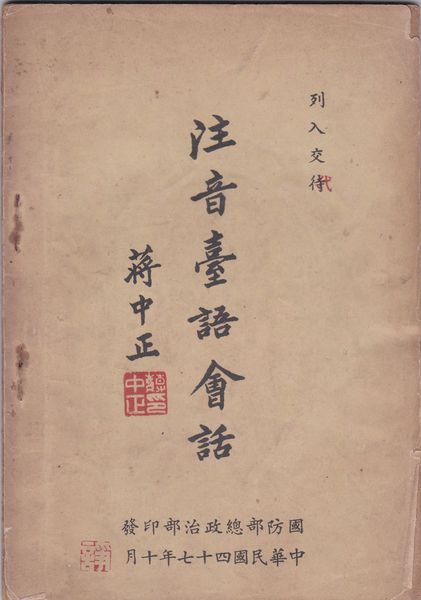 列入交待
代
注音臺語會話
蔣中正
蔣中正印
國防部總政治部印發
中華民國四十七年十月